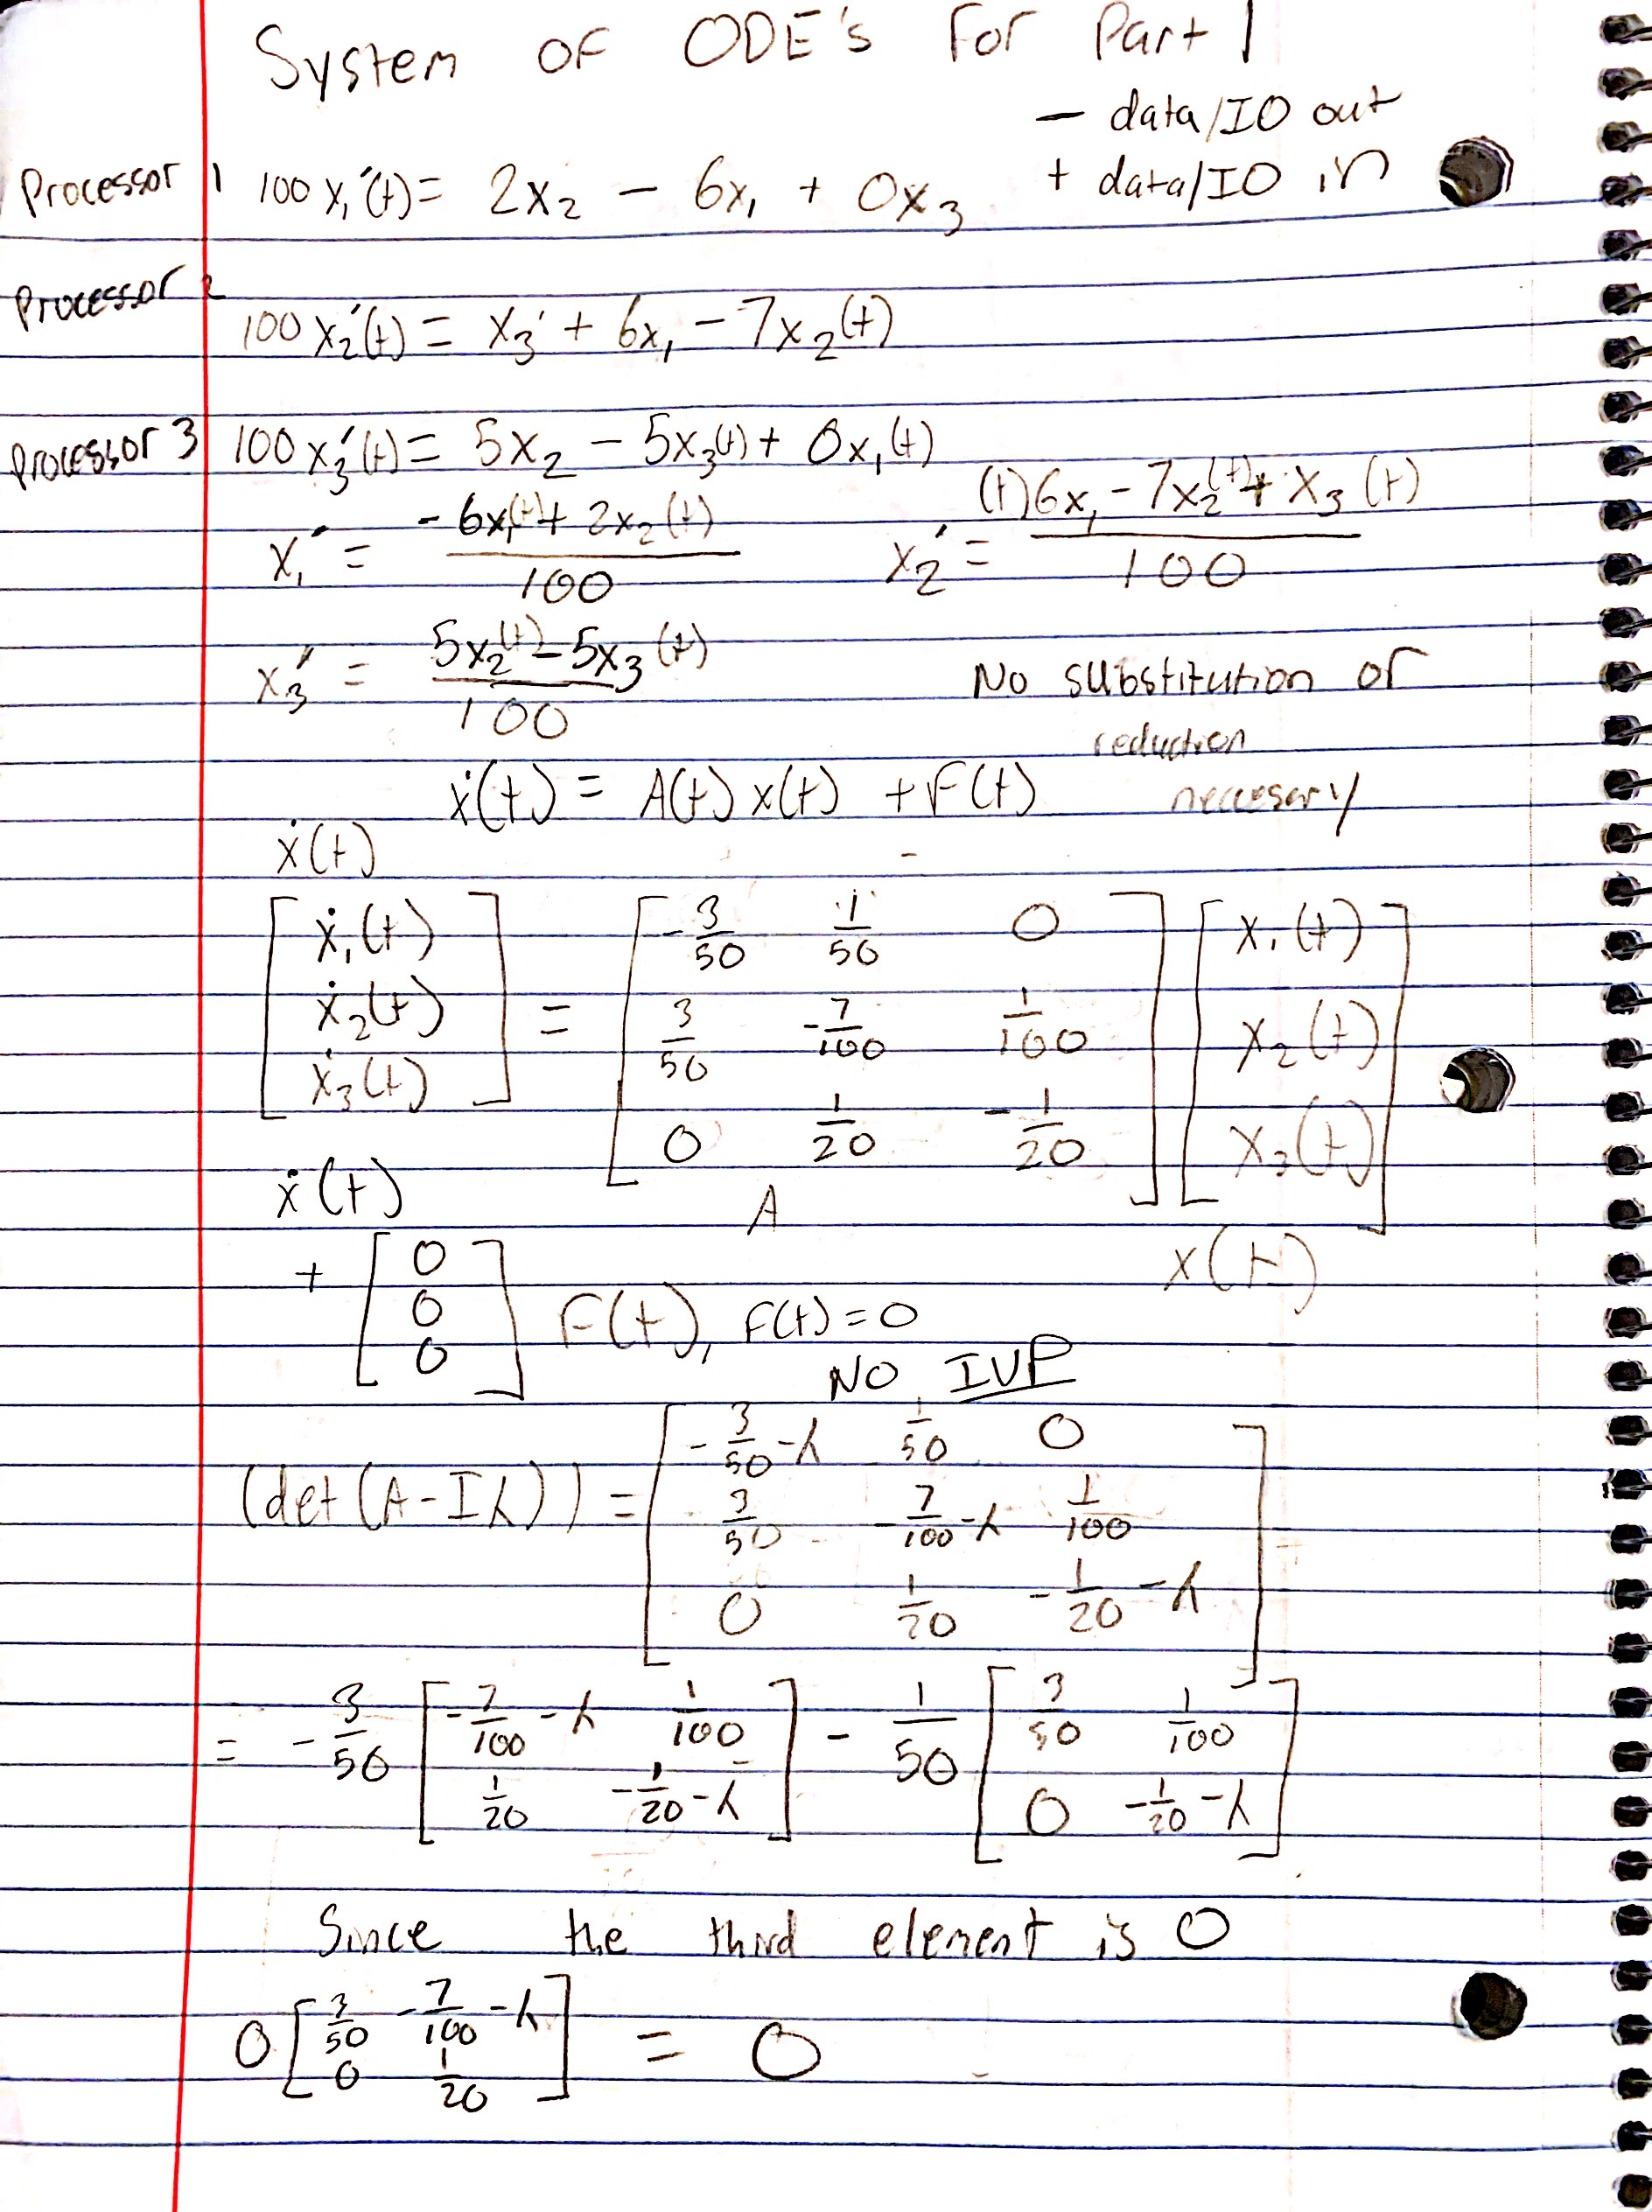 System OF ODE's For Part 1
− data/IO out
+ data/IO in
Processor 1 100 x₁′(t) = 2x₂ − 6x₁ + 0x₃
Processor 2
100 x₂′(t) = x₃′ + 6x₁ − 7x₂(t)
Processor 3 100 x₃′(t) = 5x₂ − 5x₃(t) + 0x₁(t)
x₁′ = (−6x₁(t) + 2x₂(t))/100 x₂′ = ((t)6x₁ − 7x₂(t) + x₃(t))/100
x₃′ = (5x₂(t) − 5x₃(t))/100
No substitution or
reduction
neccesery
ẋ(t) = A(t) x(t) + F(t)
ẋ(t)
[ẋ₁(t) ẋ₂(t) ẋ₃(t)] = [−3/50 1/50 0; 3/50 −7/100 1/100; 0 1/20 −1/20] [x₁(t) x₂(t) x₃(t)]
ẋ(t) A x(t)
+ [0 0 0] F(t), F(t) = 0
NO IVP
(det(A − Iλ)) = [−3/50 − λ 1/50 0; 3/50 −7/100 − λ 1/100; 0 1/20 −1/20 − λ]
= −3/50 [−7/100 − λ 1/100; 1/20 −1/20 − λ] − 1/50 [3/50 1/100; 0 −1/20 − λ]
Since the third element is 0
0 [3/50 −7/100 − λ; 0 1/20] = 0